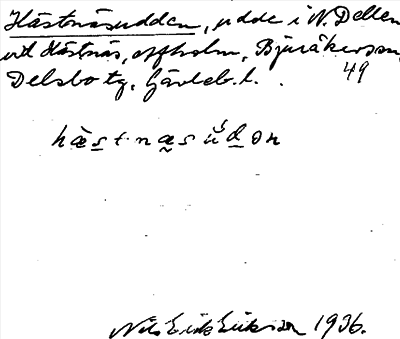 Hästnäsudden, udde i N. Dellen
vid Hästnäs, Afholm, Bjuråkers sn,
Delsbo tg, Gävleb. l. 49
hästnäsúdən
Nils Erik Eriksson 1936.